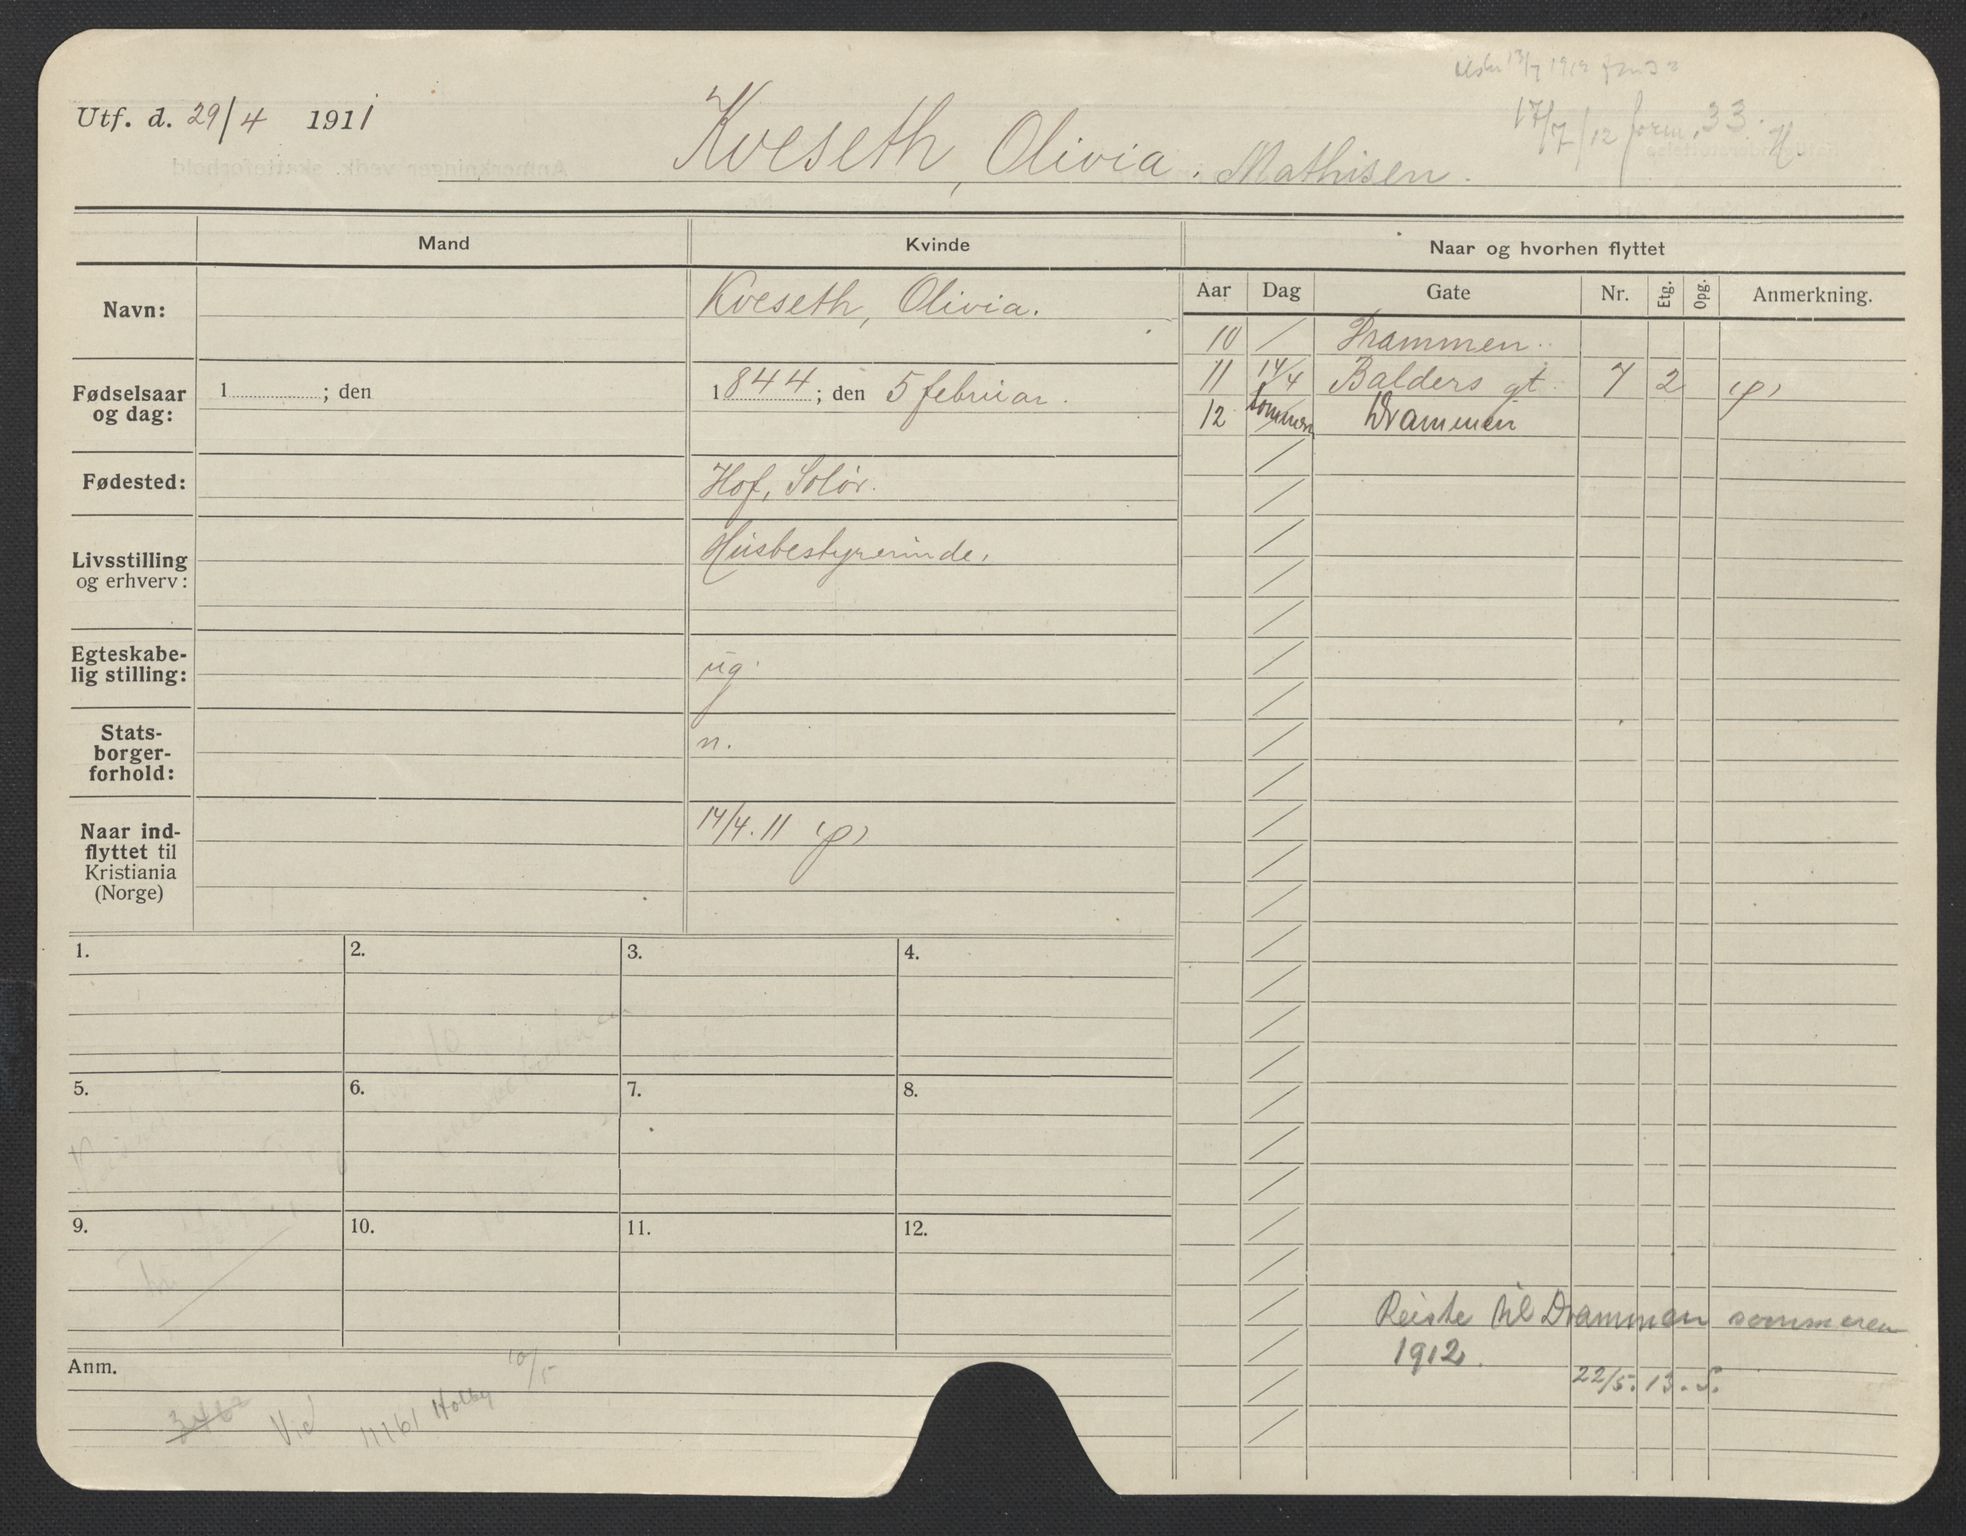 Utf. d. 29/4 1911
Kveseth, Olivia. Mathisen.
17/7/12 form. 33.
Mand
Kvinde
Naar og hvorhen flyttet
Navn:
Kveseth, Olivia.
Aar Dag Gate Nr. Etg. Opg. Anmerkning.
10 Drammen
11 14/4 Balders gt. 7 2 (p)
12 sommeren Drammen
Fødselsaar
og dag:
1 ; den
1844; den 5 februar.
Fødested:
Hof, Solør.
Livsstilling
og erhverv:
Husbestyrerinde.
Egteskabe-
lig stilling:
ug.
Stats-
borger-
forhold:
n.
Naar ind-
flyttet til
Kristiania
(Norge)
14/4. 11 (p)
1. 2. 3. 4.
5. 6. 7. 8.
9. 10. 11. 12.
Reiste til Drammen sommeren
1912.
22/5. 13. S.
Anm.
Vid 11161 Holby 10/5